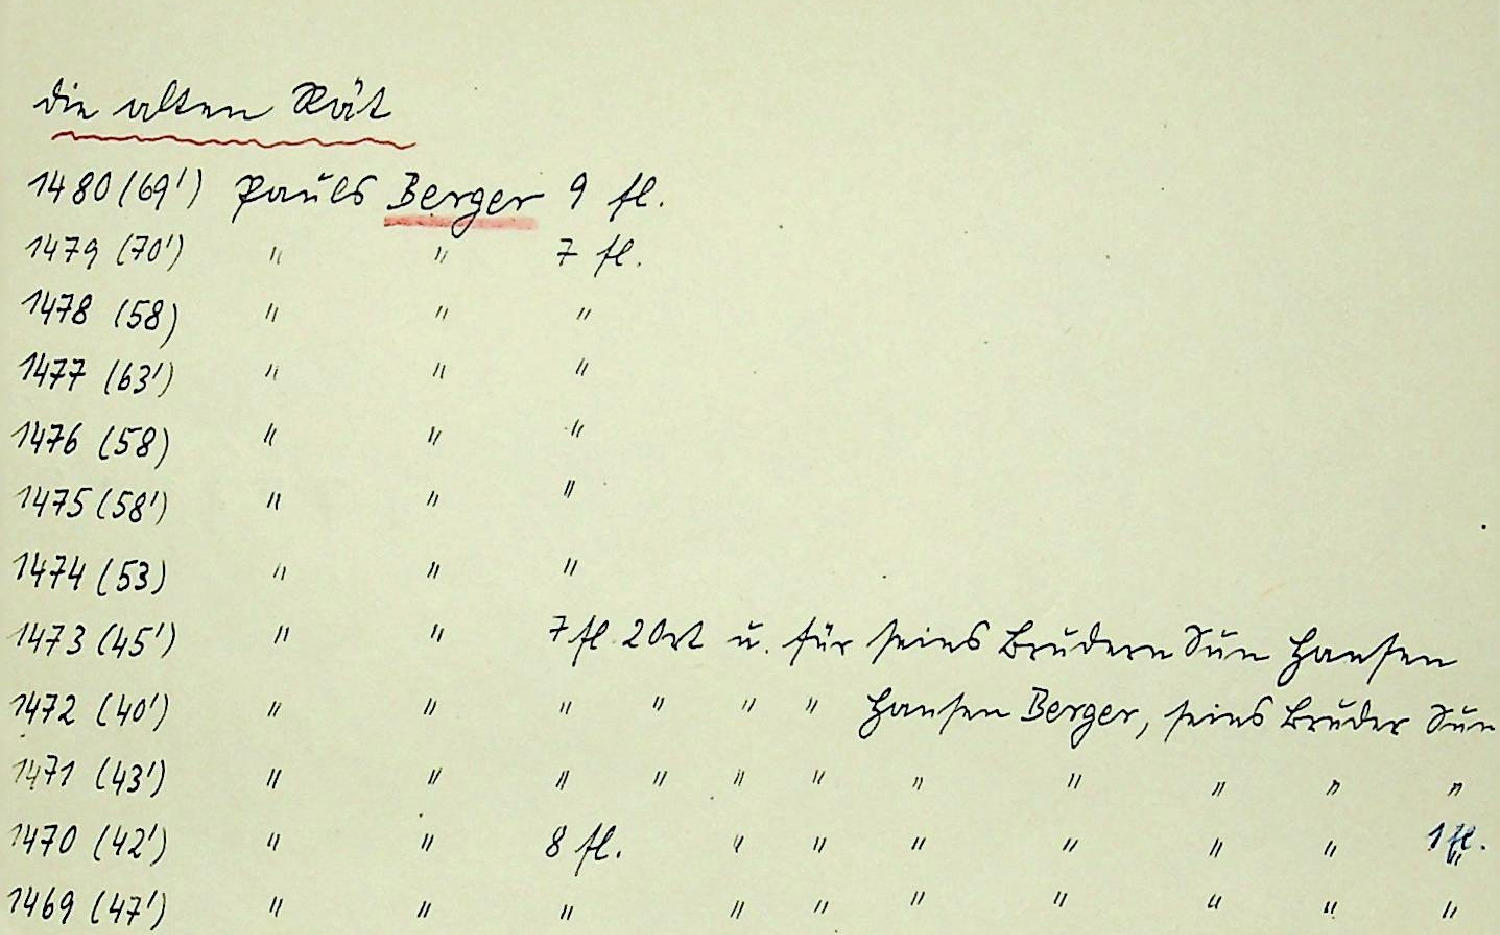 die alten Rät
1480 (69') Pauls Berger 9 fl.
1479 (70') " " 7 fl.
1478 (58) " " "
1477 (63') " " "
1476 (58) " " "
1475 (58') " " "
1474 (53) " " "
1473 (45') " " 7 fl. 2 Ort u. für seins Brudern Sun Hansen
1472 (40') " " " " " " Hansen Berger, seins Bruder Sun
1471 (43') " " " " " " " " " " "
1470 (42') " " 8 fl. " " " " " " 1 fl. "
1469 (47') " " " " " " " " " "